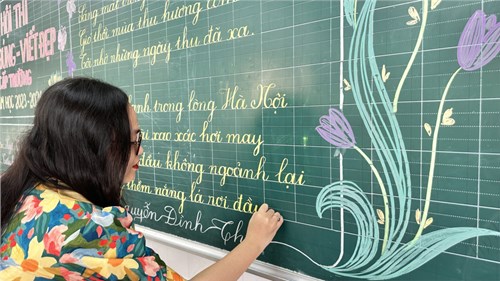 HỘI THI
VIẾT ĐẸP
CẤP TRƯỜNG
Sáng mát
Gió thổi mùa thu hương cốm
Tôi nhớ những ngày thu đã xa.
trong lòng Hà Nội
xao xác hơi may
đầu không ngoảnh lại
thềm nắng lá rơi đầy
Nguyễn Đình Th